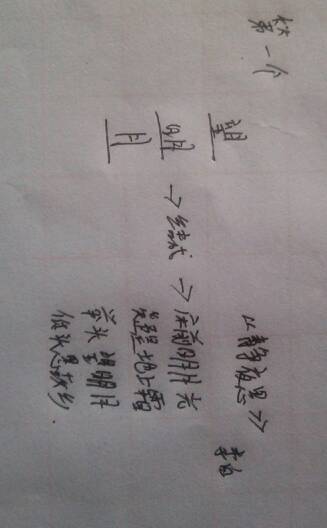 第一个
《静夜思》
李白
望
明
月
→
→ 床前明月光
疑是地上霜
举头望明月
低头思故乡